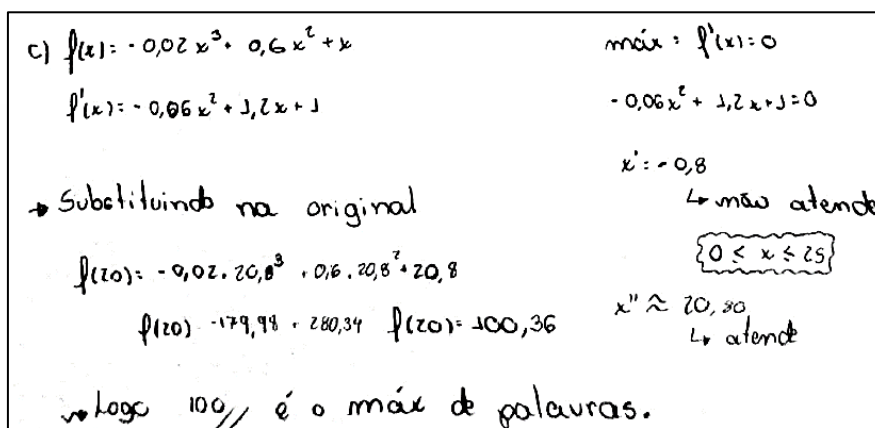 c) f(x) = - 0,02 x³ + 0,6 x² + x
f'(x) = - 0,06 x² + 1,2x + 1
→ Substituindo na original
f(20) = - 0,02 . 20,8³ + 0,6 . 20,8² + 20,8
f(20) -179,98 + 280,34 f(20) = 100,36
→ Logo 100// é o máx de palavras.
máx : f'(x) = 0
- 0,06 x² + 1,2x + 1 = 0
x' = - 0,8
↳ não atende
0 ≤ x ≤ 25
x'' ≈ 20,80
↳ atende